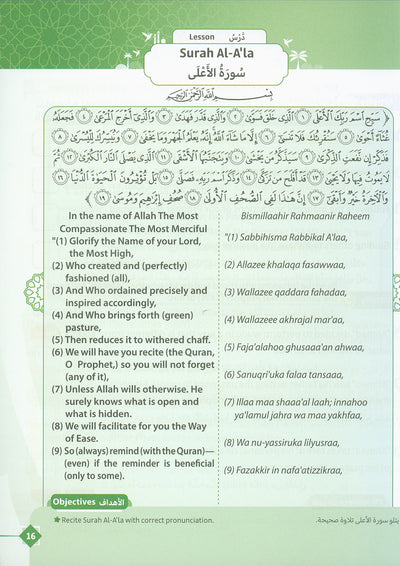 Lesson دَرْسُ
Surah Al-A'la
سُورَةُ الأَعْلَى
بِسْمِ اللَّهِ الرَّحْمَٰنِ الرَّحِيمِ
سَبِّحِ اسْمَ رَبِّكَ الْأَعْلَى ١ الَّذِي خَلَقَ فَسَوَّىٰ ٢ وَالَّذِي قَدَّرَ فَهَدَىٰ ٣ وَالَّذِي أَخْرَجَ الْمَرْعَىٰ ٤ فَجَعَلَهُ
غُثَاءً أَحْوَىٰ ٥ سَنُقْرِئُكَ فَلَا تَنسَىٰ ٦ إِلَّا مَا شَاءَ اللَّهُ إِنَّهُ يَعْلَمُ الْجَهْرَ وَمَا يَخْفَىٰ ٧ وَنُيَسِّرُكَ لِلْيُسْرَىٰ ٨
فَذَكِّرْ إِن نَّفَعَتِ الذِّكْرَىٰ ٩ سَيَذَّكَّرُ مَن يَخْشَىٰ ١٠ وَيَتَجَنَّبُهَا الْأَشْقَى ١١ الَّذِي يَصْلَى النَّارَ الْكُبْرَىٰ ١٢ ثُمَّ
لَا يَمُوتُ فِيهَا وَلَا يَحْيَىٰ ١٣ قَدْ أَفْلَحَ مَن تَزَكَّىٰ ١٤ وَذَكَرَ اسْمَ رَبِّهِ فَصَلَّىٰ ١٥ بَلْ تُؤْثِرُونَ الْحَيَاةَ الدُّنْيَا ١٦
وَالْآخِرَةُ خَيْرٌ وَأَبْقَىٰ ١٧ إِنَّ هَٰذَا لَفِي الصُّحُفِ الْأُولَىٰ ١٨ صُحُفِ إِبْرَاهِيمَ وَمُوسَىٰ ١٩
In the name of Allah The Most
Compassionate The Most Merciful
"(1) Glorify the Name of your Lord,
the Most High,
(2) Who created and (perfectly)
fashioned (all),
(3) And Who ordained precisely and
inspired accordingly,
(4) And Who brings forth (green)
pasture,
(5) Then reduces it to withered chaff.
(6) We will have you recite (the Quran,
O Prophet,) so you will not forget
(any of it),
(7) Unless Allah wills otherwise. He
surely knows what is open and
what is hidden.
(8) We will facilitate for you the Way
of Ease.
(9) So (always) remind (with the Quran)—
(even) if the reminder is beneficial
(only to some).
Bismillaahir Rahmaanir Raheem
"(1) Sabbihisma Rabbikal A'laa,
(2) Allazee khalaqa fasawwaa,
(3) Wallazee qaddara fahadaa,
(4) Wallazeee akhrajal mar'aa,
(5) Faja'alahoo ghusaaa'an ahwaa,
(6) Sanuqri'uka falaa tansaaa,
(7) Illaa maa shaaa'al laah; innahoo
ya'lamul jahra wa maa yakhfaa,
(8) Wa nu-yassiruka lilyusraa,
(9) Fazakkir in nafa'atizzikraa,
Objectives الأهداف
Recite Surah Al-A'la with correct pronunciation.
يتلو سورة الأعلى تلاوة صحيحة.
16